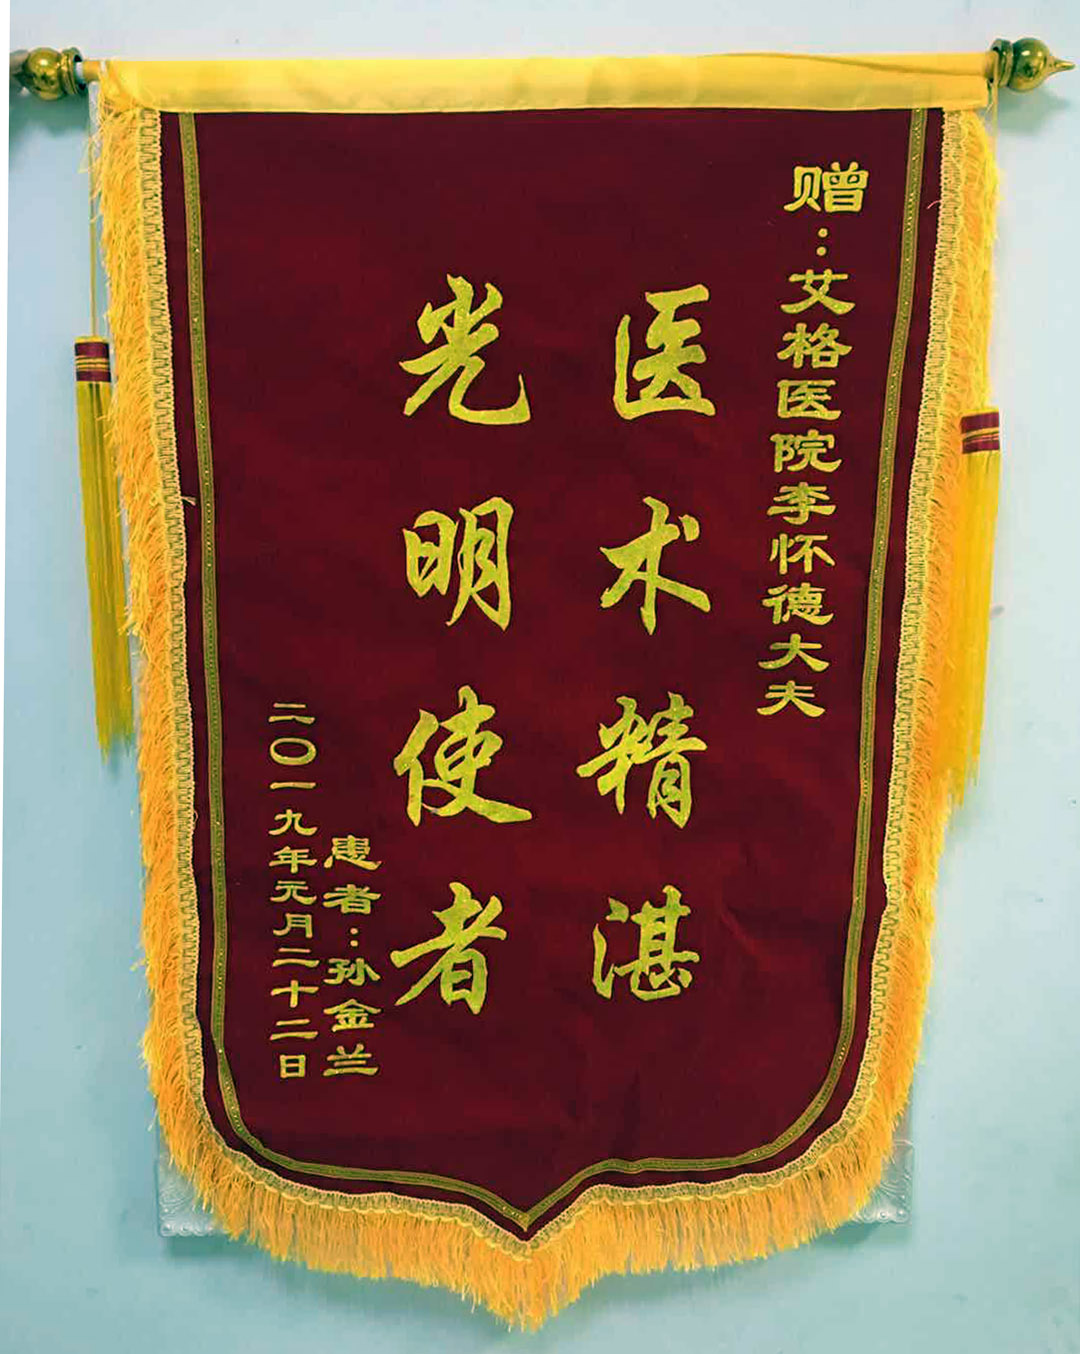 赠：艾格医院李怀德大夫
医术精湛
光明使者
患者：孙金兰
二〇一九年元月二十二日